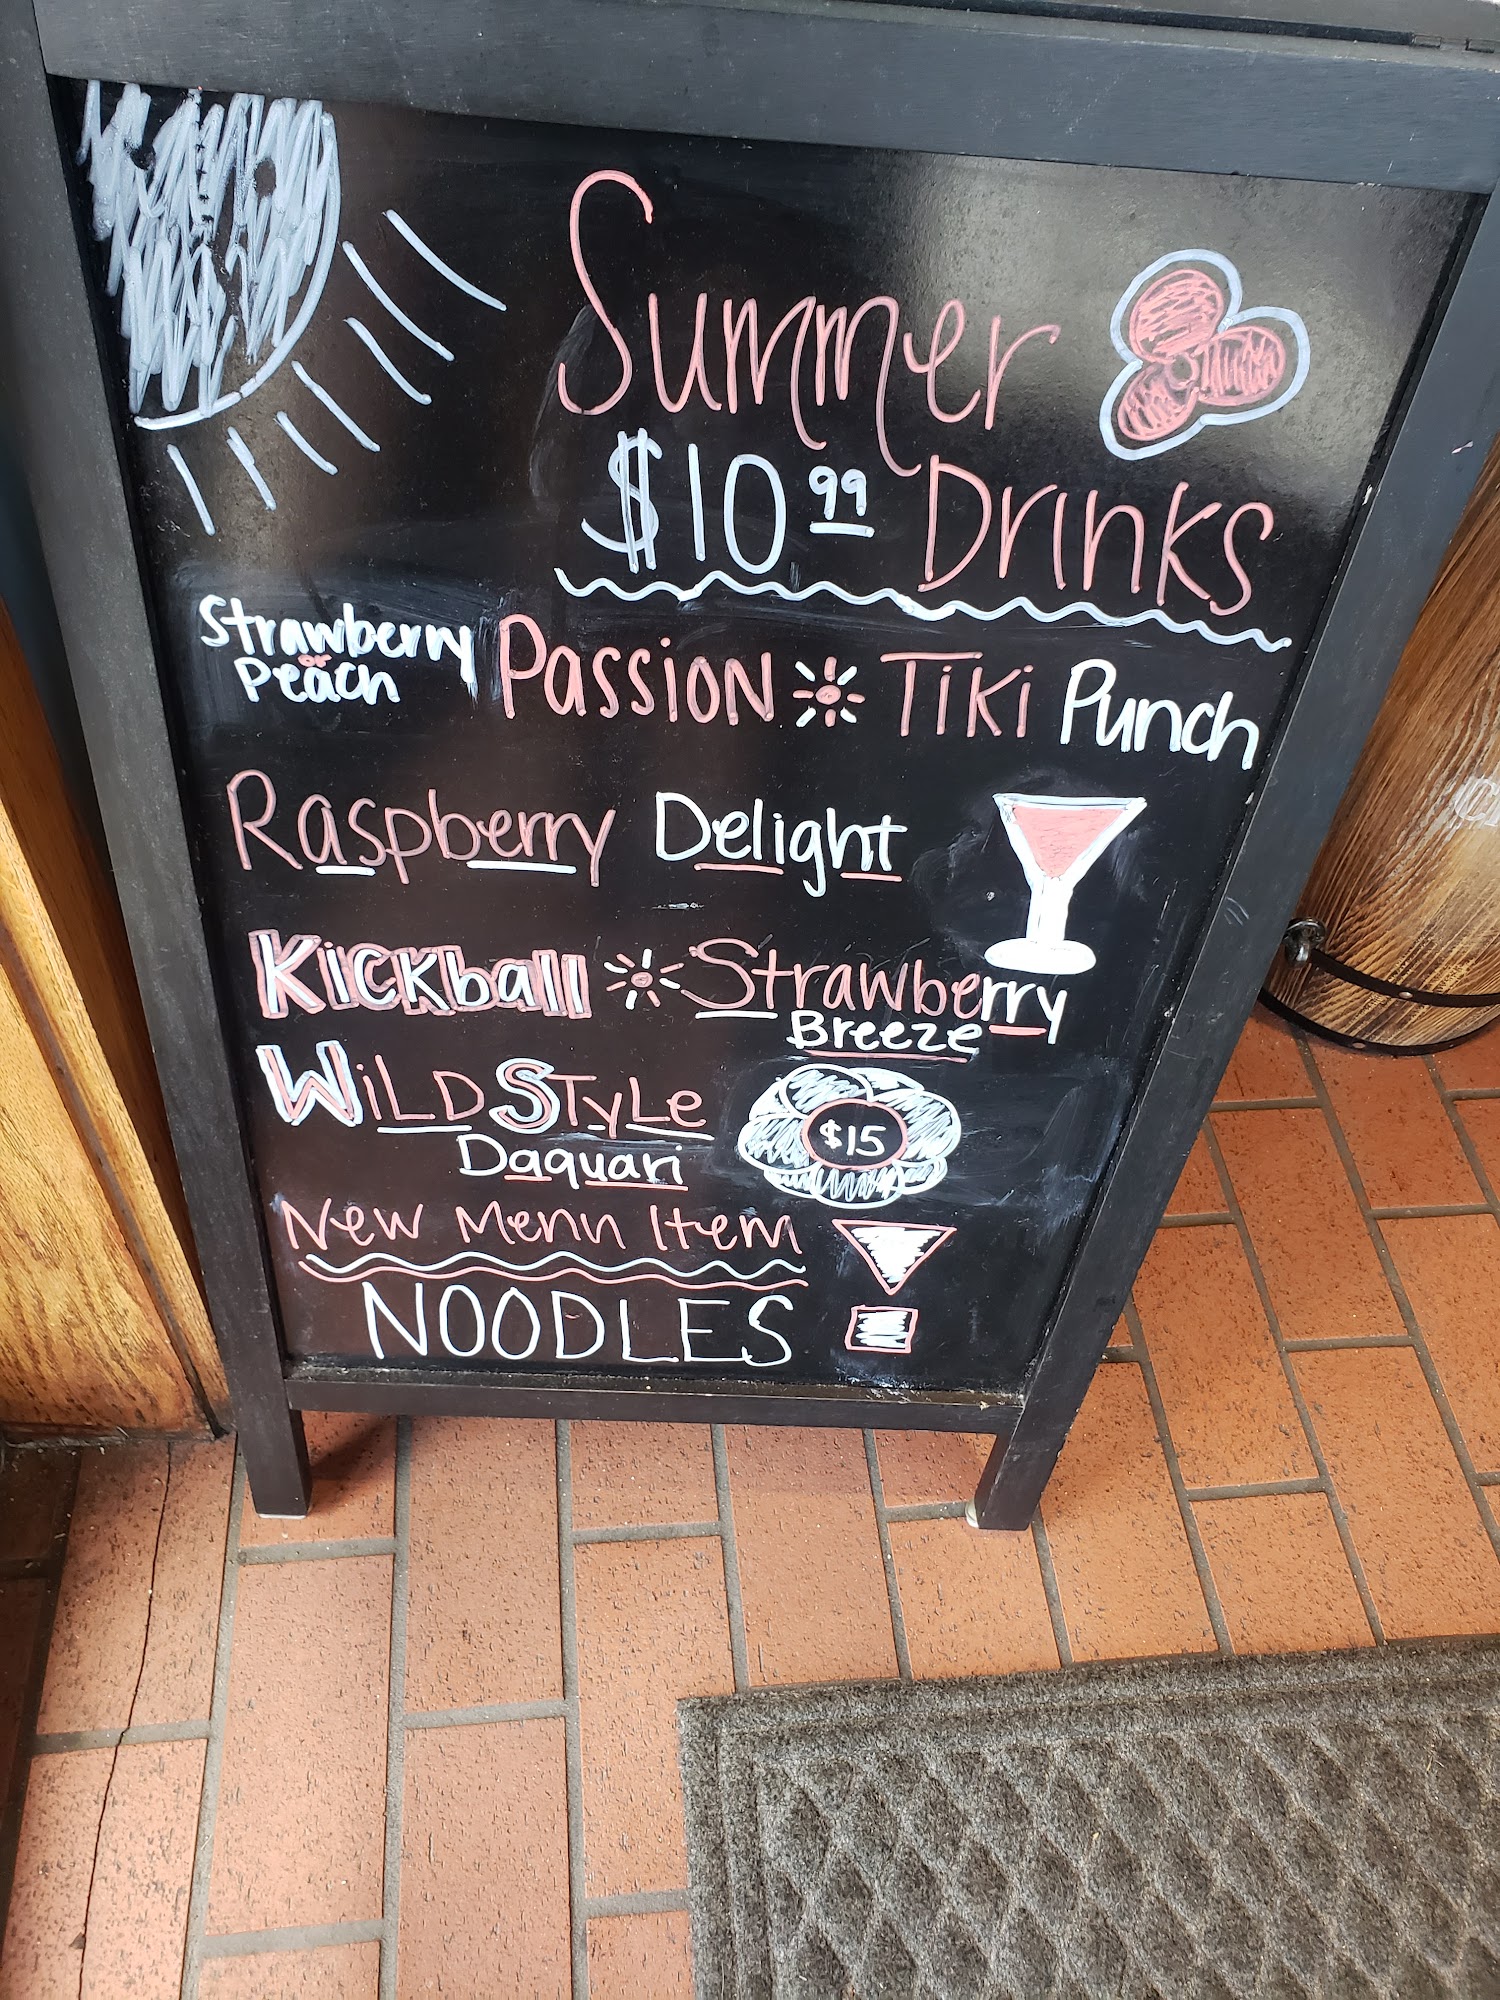 Summer
$10.99 Drinks
Strawberry
or
Peach
Passion Tiki Punch
Raspberry Delight
Kickball Strawberry
Breeze
Wild Style
Daquari
$15
New Menu Item
NOODLES